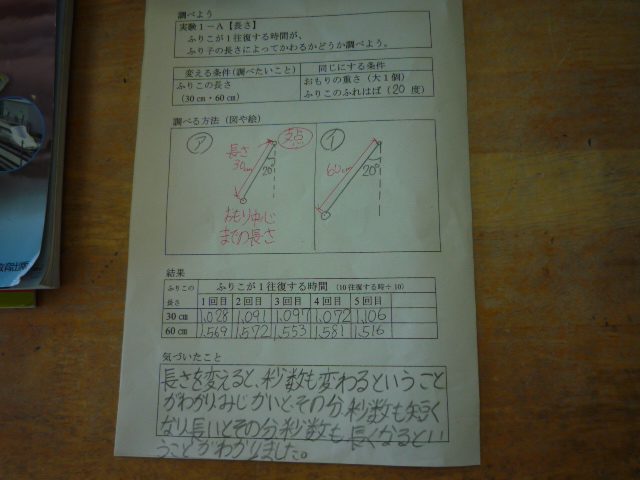 調べよう
実験1-A【長さ】
ふりこが1往復する時間が、
ふり子の長さによってかわるかどうか調べよう。
変える条件(調べたいこと) 同じにする条件
ふりこの長さ おもりの重さ(大1個)
(30㎝・60㎝) ふりこのふれはば(20度)
調べる方法(図や絵)
ア 支点 イ
長さ
30cm 20° 60cm 20°
おもり
までの長さ
結果
ふりこの長さ ふりこが1往復する時間 (10往復する時÷10)
1回目 2回目 3回目 4回目 5回目
30㎝ 1.028 1.091 1.097 1.072 1.106
60㎝ 1.569 1.572 1.553 1.581 1.516
気づいたこと
長さを変えると、秒数も変わるということ
がわかり、みじかいと、その分、秒数も短く
なり、長いとその分、秒数も長くなるとい
うことがわかりました。